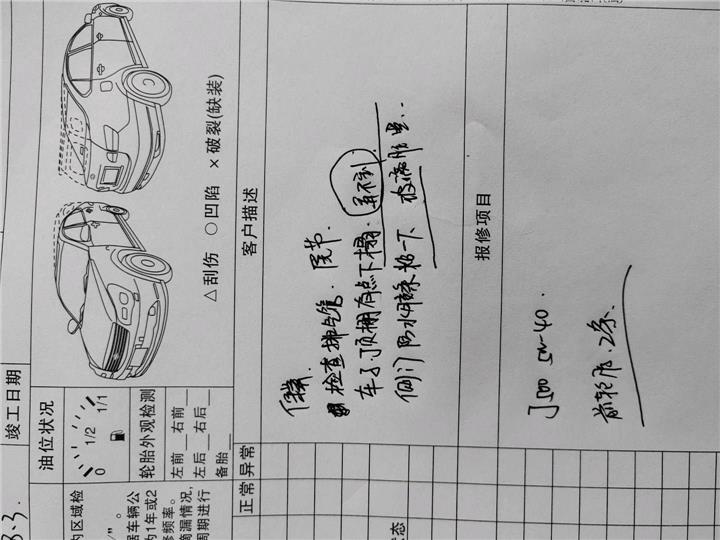 竣工日期
油位状况
0 1/2 1/1
△刮伤 ○凹陷 ×破裂(缺装)
轮胎外观检测
左前__右前__
左后__右后__
备胎__
正常 异常
客户描述
保养.
检查排气管.
车子顶棚有点下塌.
侧门防水胶条粘一下
报修项目
5W-40.
前轮胎.2条.
3.3.
内区域检
居车辆公
为1年或2
修频率。
滴漏情况,
周期进行
状态